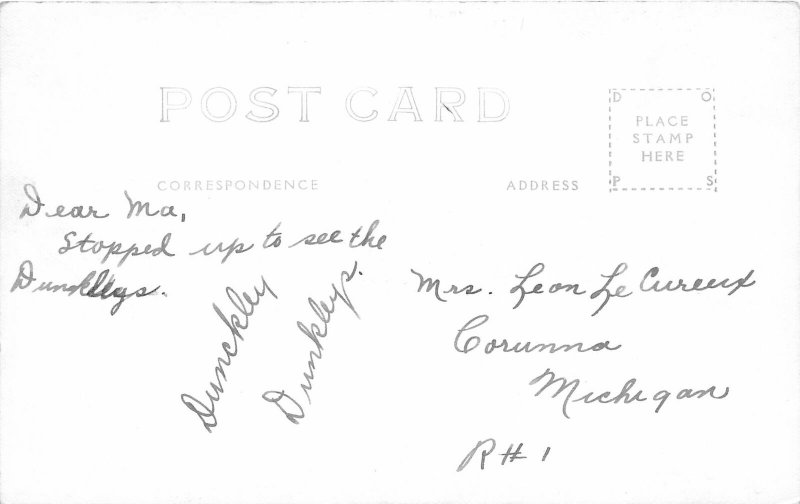 POST CARD
D O
PLACE
STAMP
HERE
P S
CORRESPONDENCE
ADDRESS
Dear Ma,
Stopped up to see the
Dunckleys.
Dunckley
Dunkleys.
Mrs. Leon Le Cureux
Corunna
Michigan
R # 1